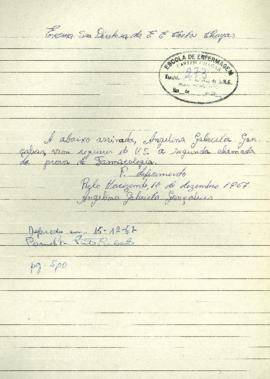 Exma Sra Diretora da E E Carlos Chagas
ESCOLA DE ENFERMAGEM
A abaixo assinada, Angelina Gabriela Gon-
çalves, vem requerer de V.S. a segunda chamada
da prova de Farmacologia.
P. deferimento
Belo Horizonte, 10 de dezembro 1967
Angelina Gabriela Gonçalves
Deferido em, 15-12-67
pg. 500